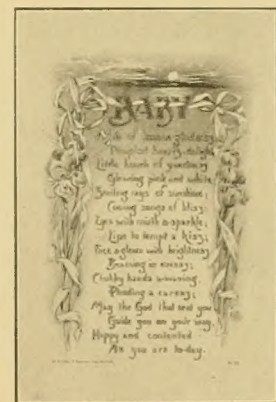 BABY
of human gladness
Little bunch of sweetness
Glowing pink and white
Smiling rays of sunshine;
Cooing songs of bliss;
Eyes with mirth a-sparkle;
Lips to tempt a kiss;
Face aglow with brightness
Beaming
Chubby hands a-waving.
Pleading a caress;
May the God that sent you
Guide you on your way.
Happy and contented
As you are to-day.